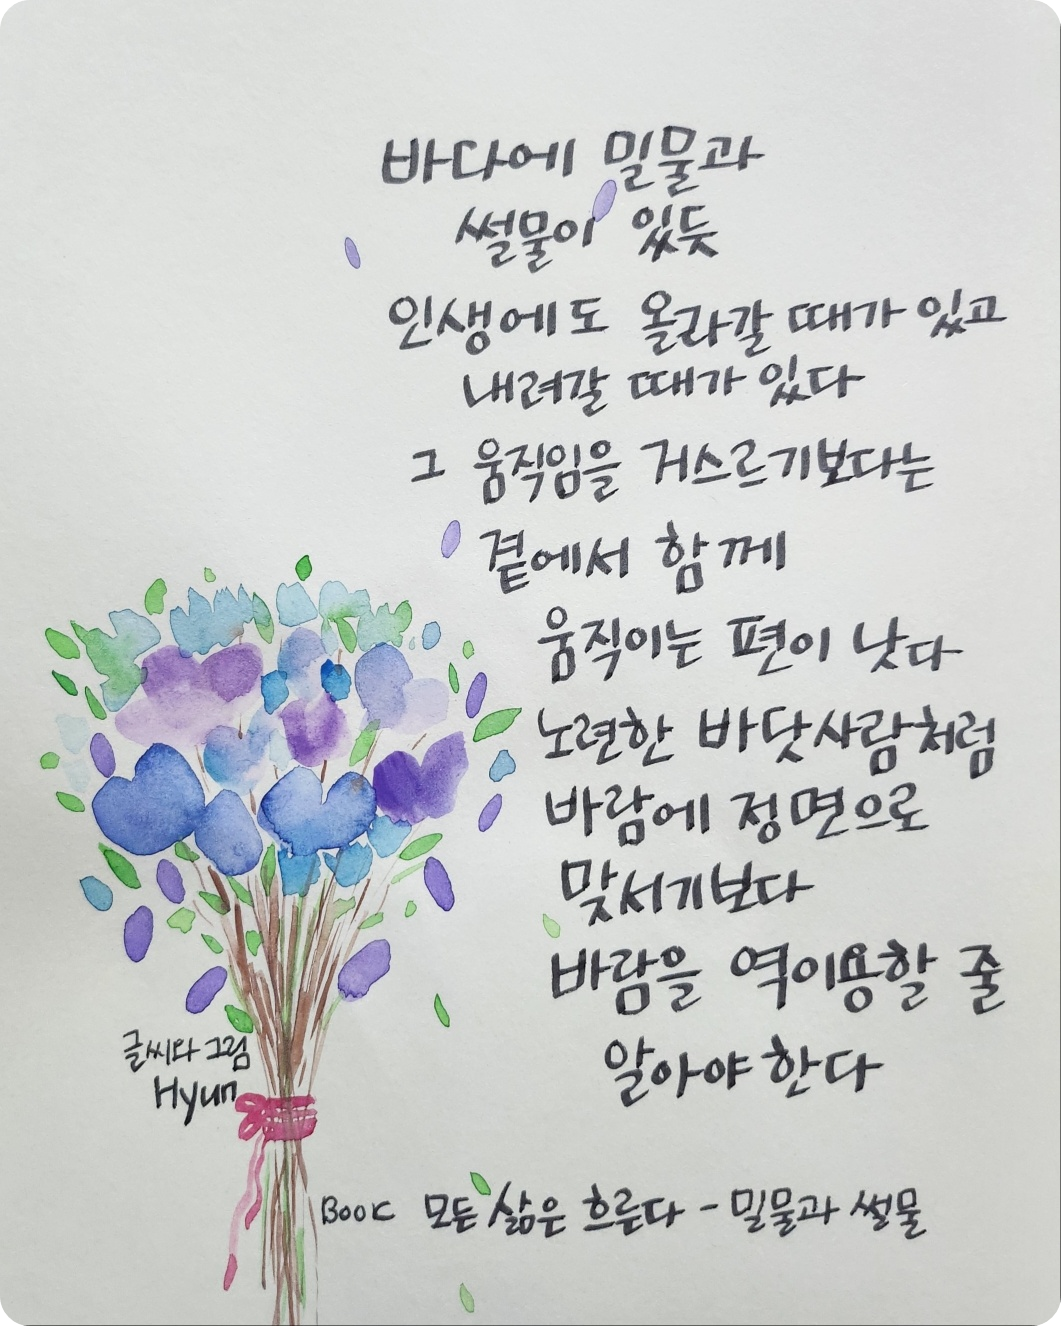 바다에 밀물과
썰물이 있듯
인생에도 올라갈 때가 있고
내려갈 때가 있다
그 움직임을 거스르기보다는
곁에서 함께
움직이는 편이 낫다
노련한 바닷사람처럼
바람에 정면으로
맞서기보다
바람을 역이용할 줄
알아야 한다
글씨와 그림
Hyun
Book 모든 삶은 흐른다 - 밀물과 썰물